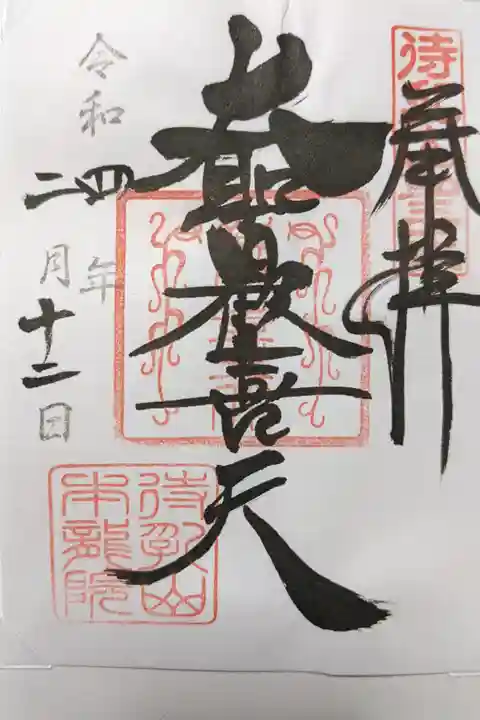 奉拝
大聖歡喜天
令和四年
二月十二日
待乳山
本龍院